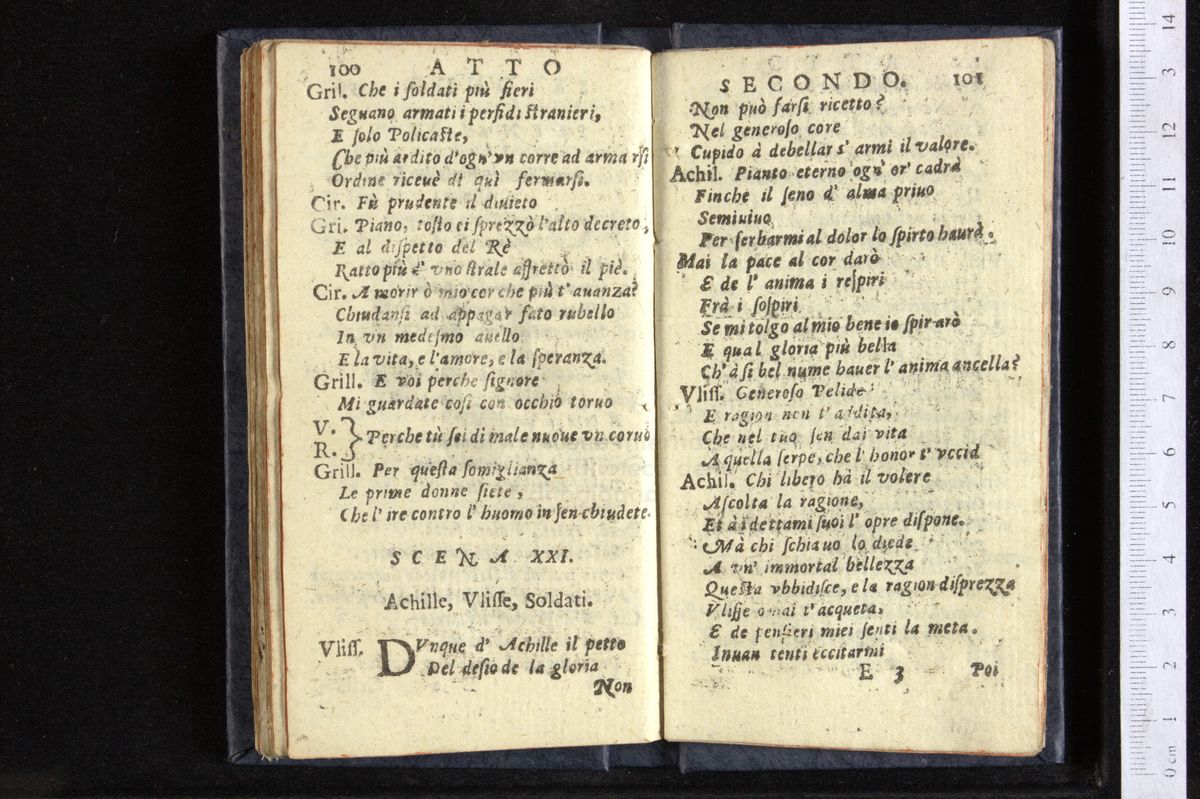 100 ATTO
Gril. Che i ſoldati più fieri
Seguano armati i perfidi ſtranieri,
E ſolo Policaſte,
Che più ardito d'ogn'vn corre ad armarſi
Ordine riceuè di quì fermarſi.
Cir. Fù prudente il diuieto
Gri. Piano, toſto ei ſprezzò l'alto decreto,
E al diſpetto del Rè
Ratto più d' vno ſtrale affrettò il piè.
Cir. A morir ò mio cor che più t'auanza?
Chiudanſi ad appagar fato rubello
In vn medeſmo auello
E la vita, e l'amore, e la ſperanza.
Grill. E voi perche ſignore
Mi guardate coſi con occhio toruo
V.
R. } Perche tù ſei di male nuoue vn coruo
Grill. Per queſta ſomiglianza
Le prime donne ſiete,
Che l'ire contro l'huomo in ſen chiudete.
SCENA XXI.
Achille, Vliſſe, Soldati.
Vliſſ. DVnque d' Achille il petto
Del deſio de la gloria
Non
SECONDO. 101
Non può farſi ricetto?
Nel generoſo core
Cupido à debellar s' armi il valore.
Achil. Pianto eterno ogn' or' cadrà
Finche il ſeno d' alma priuo
Semiuiuo
Per ſerbarmi al dolor lo ſpirto haurà.
Mai la pace al cor darò
E de l' anima i reſpiri
Frà i ſoſpiri
Se mi tolgo al mio bene io ſpirarò
E qual gloria più bella
Ch' à ſi bel nume hauer l' anima ancella?
Vliſſ. Generoſo Pelide
E ragion non t' addita,
Che nel tuo ſen dai vita
A quella ſerpe, che l' honor t' vccid
Achil. Chi libero hà il volere
Aſcolta la ragione,
Et à i dettami ſuoi l' opre diſpone.
Mà chi ſchiauo lo diede
A vn' immortal bellezza
Queſta vbbidiſce, e la ragion diſprezza
Vliſſe omai t'acqueta,
E de penſieri miei ſenti la meta.
Inuan tenti eccitarmi
E 3 Poi